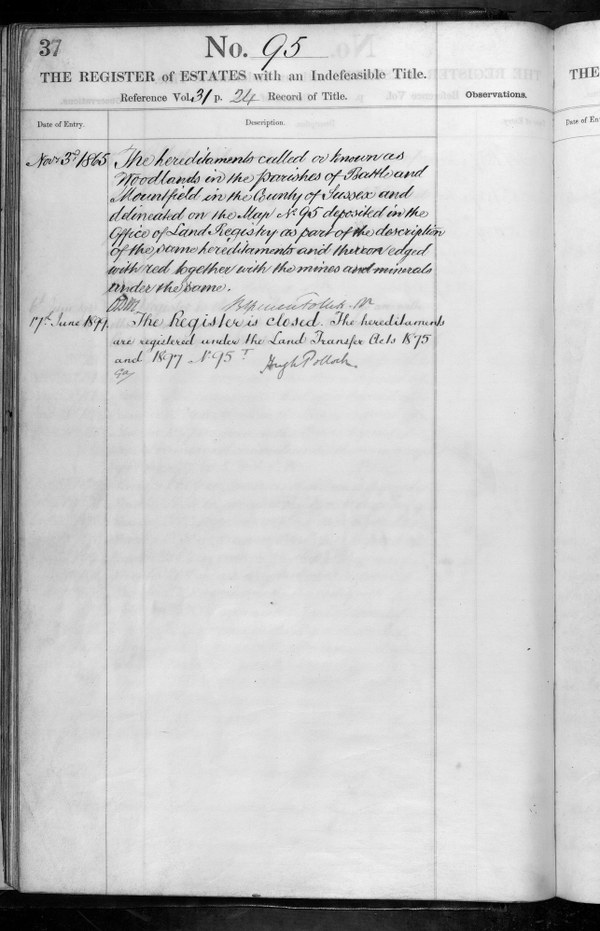 37
No. 95
THE REGISTER of ESTATES with an Indefeasible Title.
Reference Vol. 31 p. 24 Record of Title.
Observations.
Date of Entry.
Description.
Novr 3d 1865
The hereditaments called or known as
Woodlands in the parishes of Battle and
Mountfield in the County of Sussex and
delineated on the Map No 95 deposited in the
Office of Land Registry as part of the description
of the same hereditaments and thereon edged
with red together with the mines and minerals
under the same.
17th June 1899.
The Register is closed. The hereditaments
are registered under the Land Transfer Acts 1875
and 1897 No 95 T
Hugh Pollock.
THE
Date of Ent